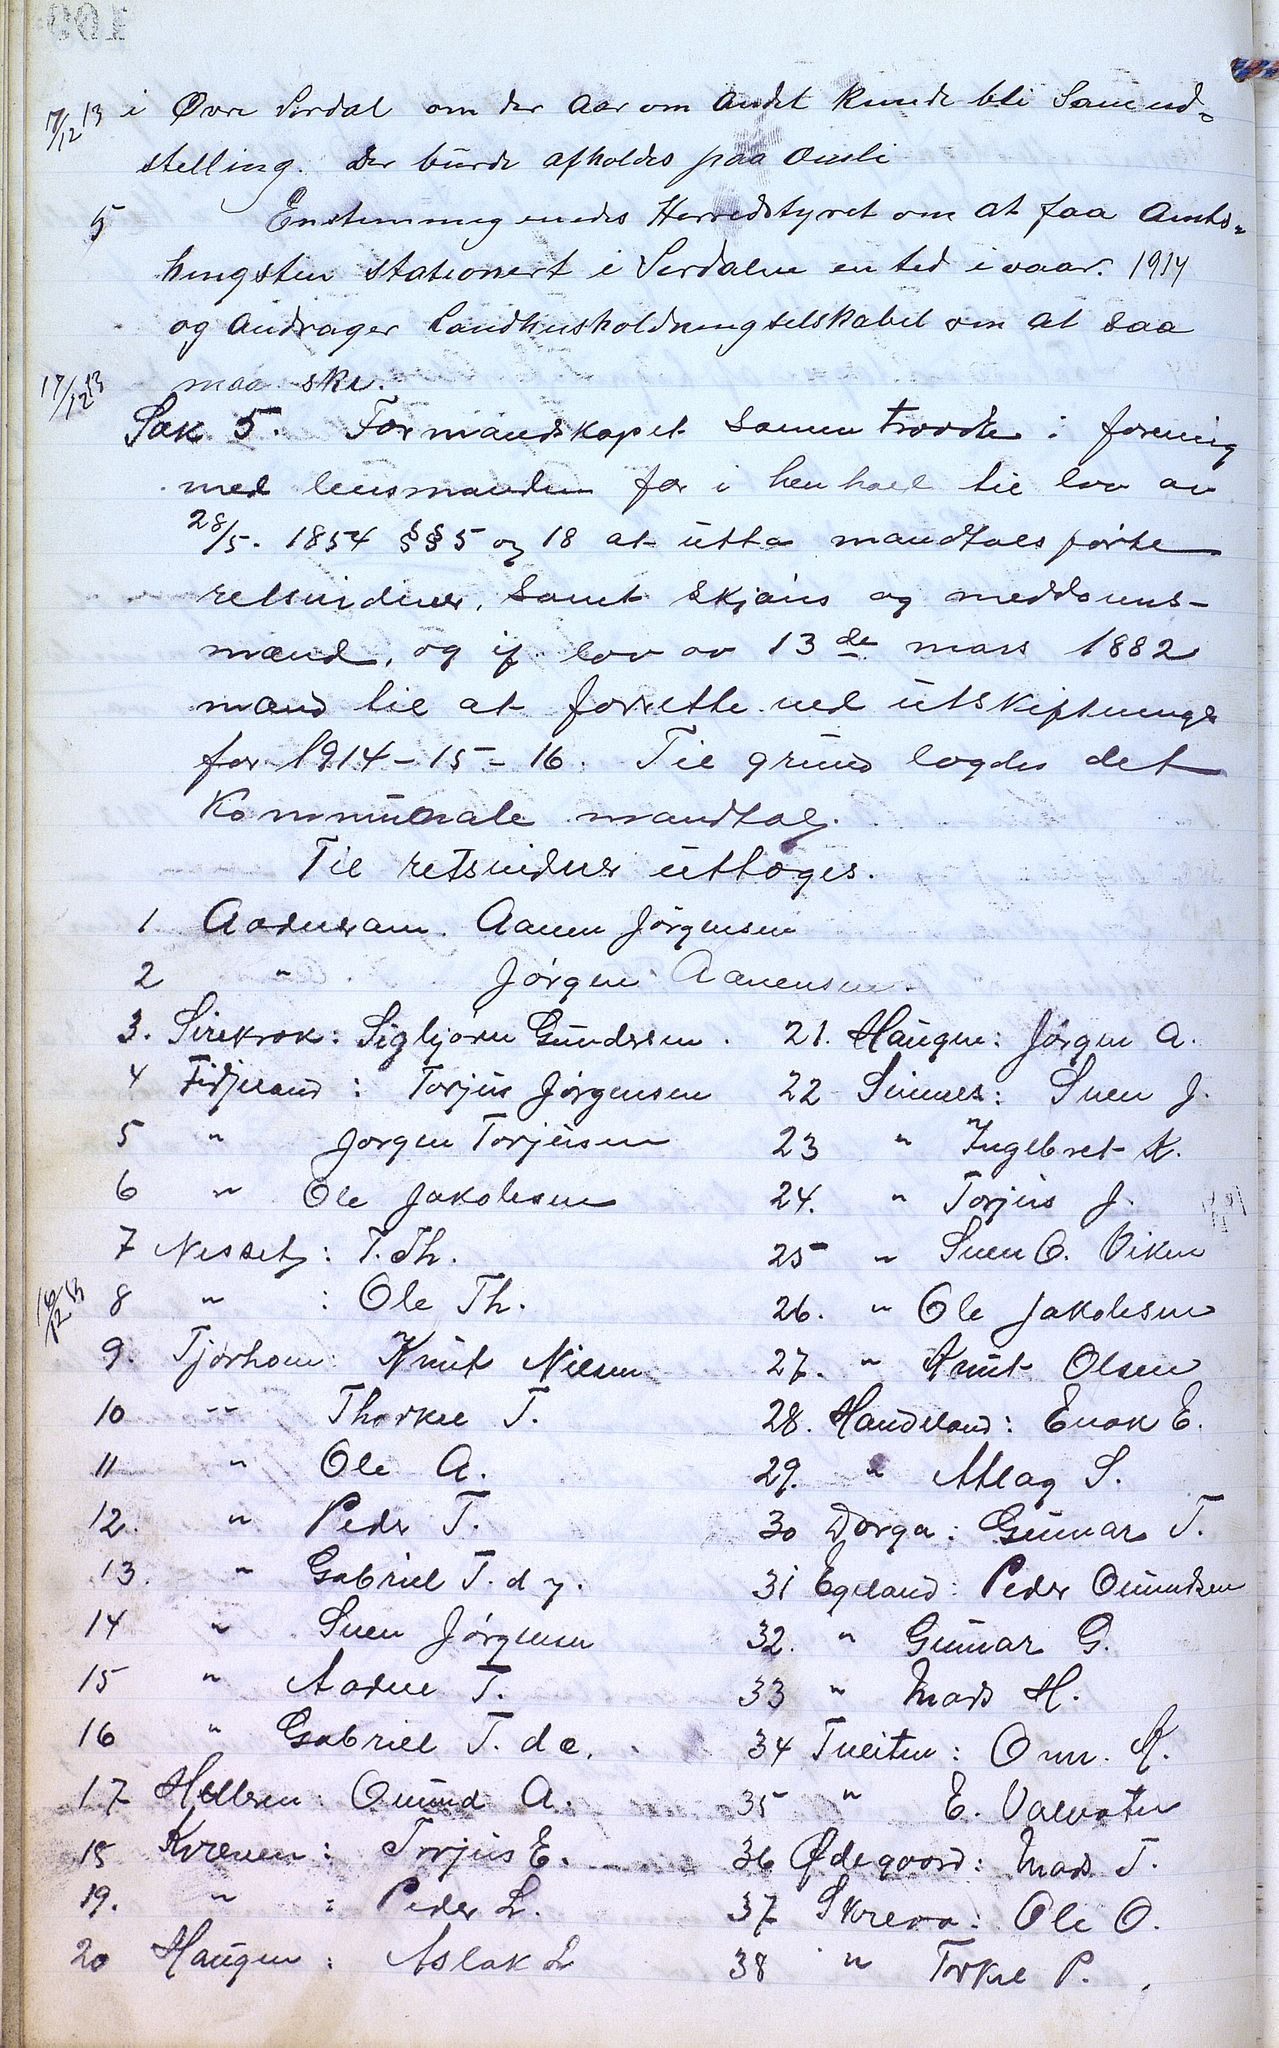 17/12 13 i Øvre Sirdal om der aar om andet kunde bli Samud-
stelling. Der burde afholdes paa Omli
5 Enstemmig enedes Herredstyret om at faa Amts-
hingsten stationert i Sirdalen en tid i vaar. 1914
og andrager Landhusholdningselskabet om at saa
17/12 13 maa ske.
Sak 5. Formandskapet sammentrædte i forening
med lensmanden for i henhold til lov av
28/5. 1854 §§5 og 18 at utta mandtalsførte
retsvidner, samt skjøns og meddoms-
mænd, og if. lov av 13de mars 1882
mænd til at forrette ved utskiftninger
for 1914-15-16. Til grund lagdes det
kommunale mandtal.
Til retsvidner uttoges.
1 Aadneram. Aanen Jørgensen
2 " Jørgen Aanensen.
3. Sirekrok: Sigbjørn Gundersen.
4 Fidjeland: Torjus Jørgensen
5 " Jørgen Torjusen
6 " Ole Jakobsen
7 Nesset: T. Th.
16/12 13 8 " : Ole Th.
9. Tjørhom: Knut Nilsen
10 " Thorkel T.
11 " Ole A.
12. " Peder T.
13. " Gabriel T. d y.
14 " Sven Jørgensen
15 " Aadne T.
16 " Gabriel T. d e.
17 Hilleren: Omund A.
18 Kvæven: Torjus E.
19. " : Peder L.
20 Haugen: Aslak L
21. Haugen: Jørgen A.
22 Sinnes: Sven J.
23 " Ingebret K.
24. " Torjus J.
25 " Sven O. Viken
26. " Ole Jakobsen
27. " Knut Olsen
28. Handeland: Enok E.
29. " Atlag S.
30 Dorga: Gunnar T.
31 Egeland: Peder Omundsen
32. " Gunnar G.
33 " Mads H.
34 Tveiten: Omn. K.
35 " E. Valevatn
36 Ødegaard: Mads T.
37 Skreaa: Ole O.
38 " Torkel P.